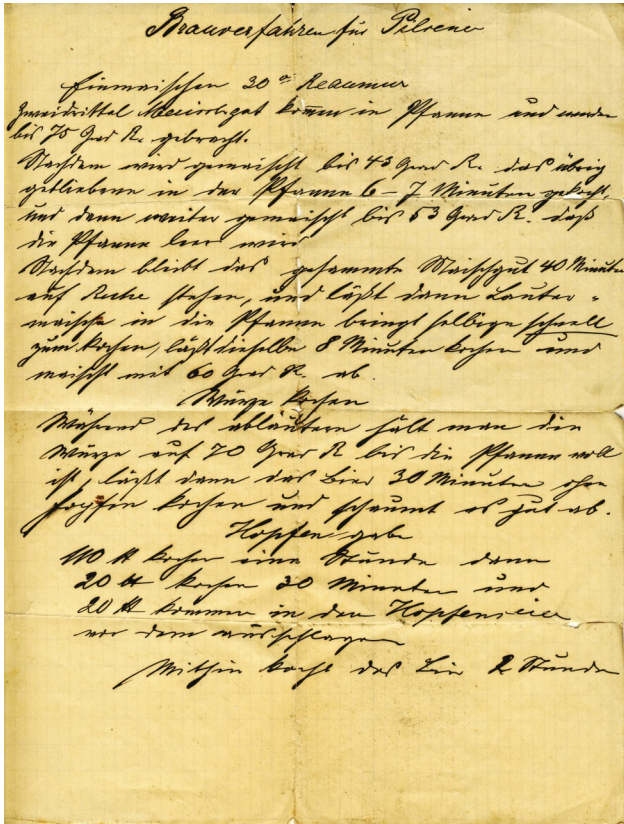 Brauverfahren für Pilsener
Einmaischen 30° Reaumur
Zweidrittel Maischgut komm in Pfanne und werden
bis 75 Grad R. gebracht.
Nachdem wird gemaischt bis 43 Grad R. das übrig
gebliebene in der Pfanne 6-7 Minuten gekocht,
und dann weiter gemaischt bis 53 Grad R. daß
die Pfanne leer wird
Nachdem bleibt das gesammte Maischgut 40 Minuten
auf Ruhe stehen, und läßt dann Lauter-
maische in die Pfanne bringt selbige schnell
zum kochen, läßt dieselbe 8 Minuten kochen und
maischt mit 60 Grad R. ab.
Würze kochen
Während des abläutern hält man die
Würze auf 70 Grad R bis die Pfanne voll
ist, läßt dann das Bier 30 Minuten ohne
Hopfen kochen und schaumt es gut ab.
Hopfen gabe
110 ℔ kochen eine Stunde dann
20 ℔ kochen 30 Minuten und
20 ℔ kommen in den
vor dem ausschlagen
Mithin kocht das Bier 2 Stunden